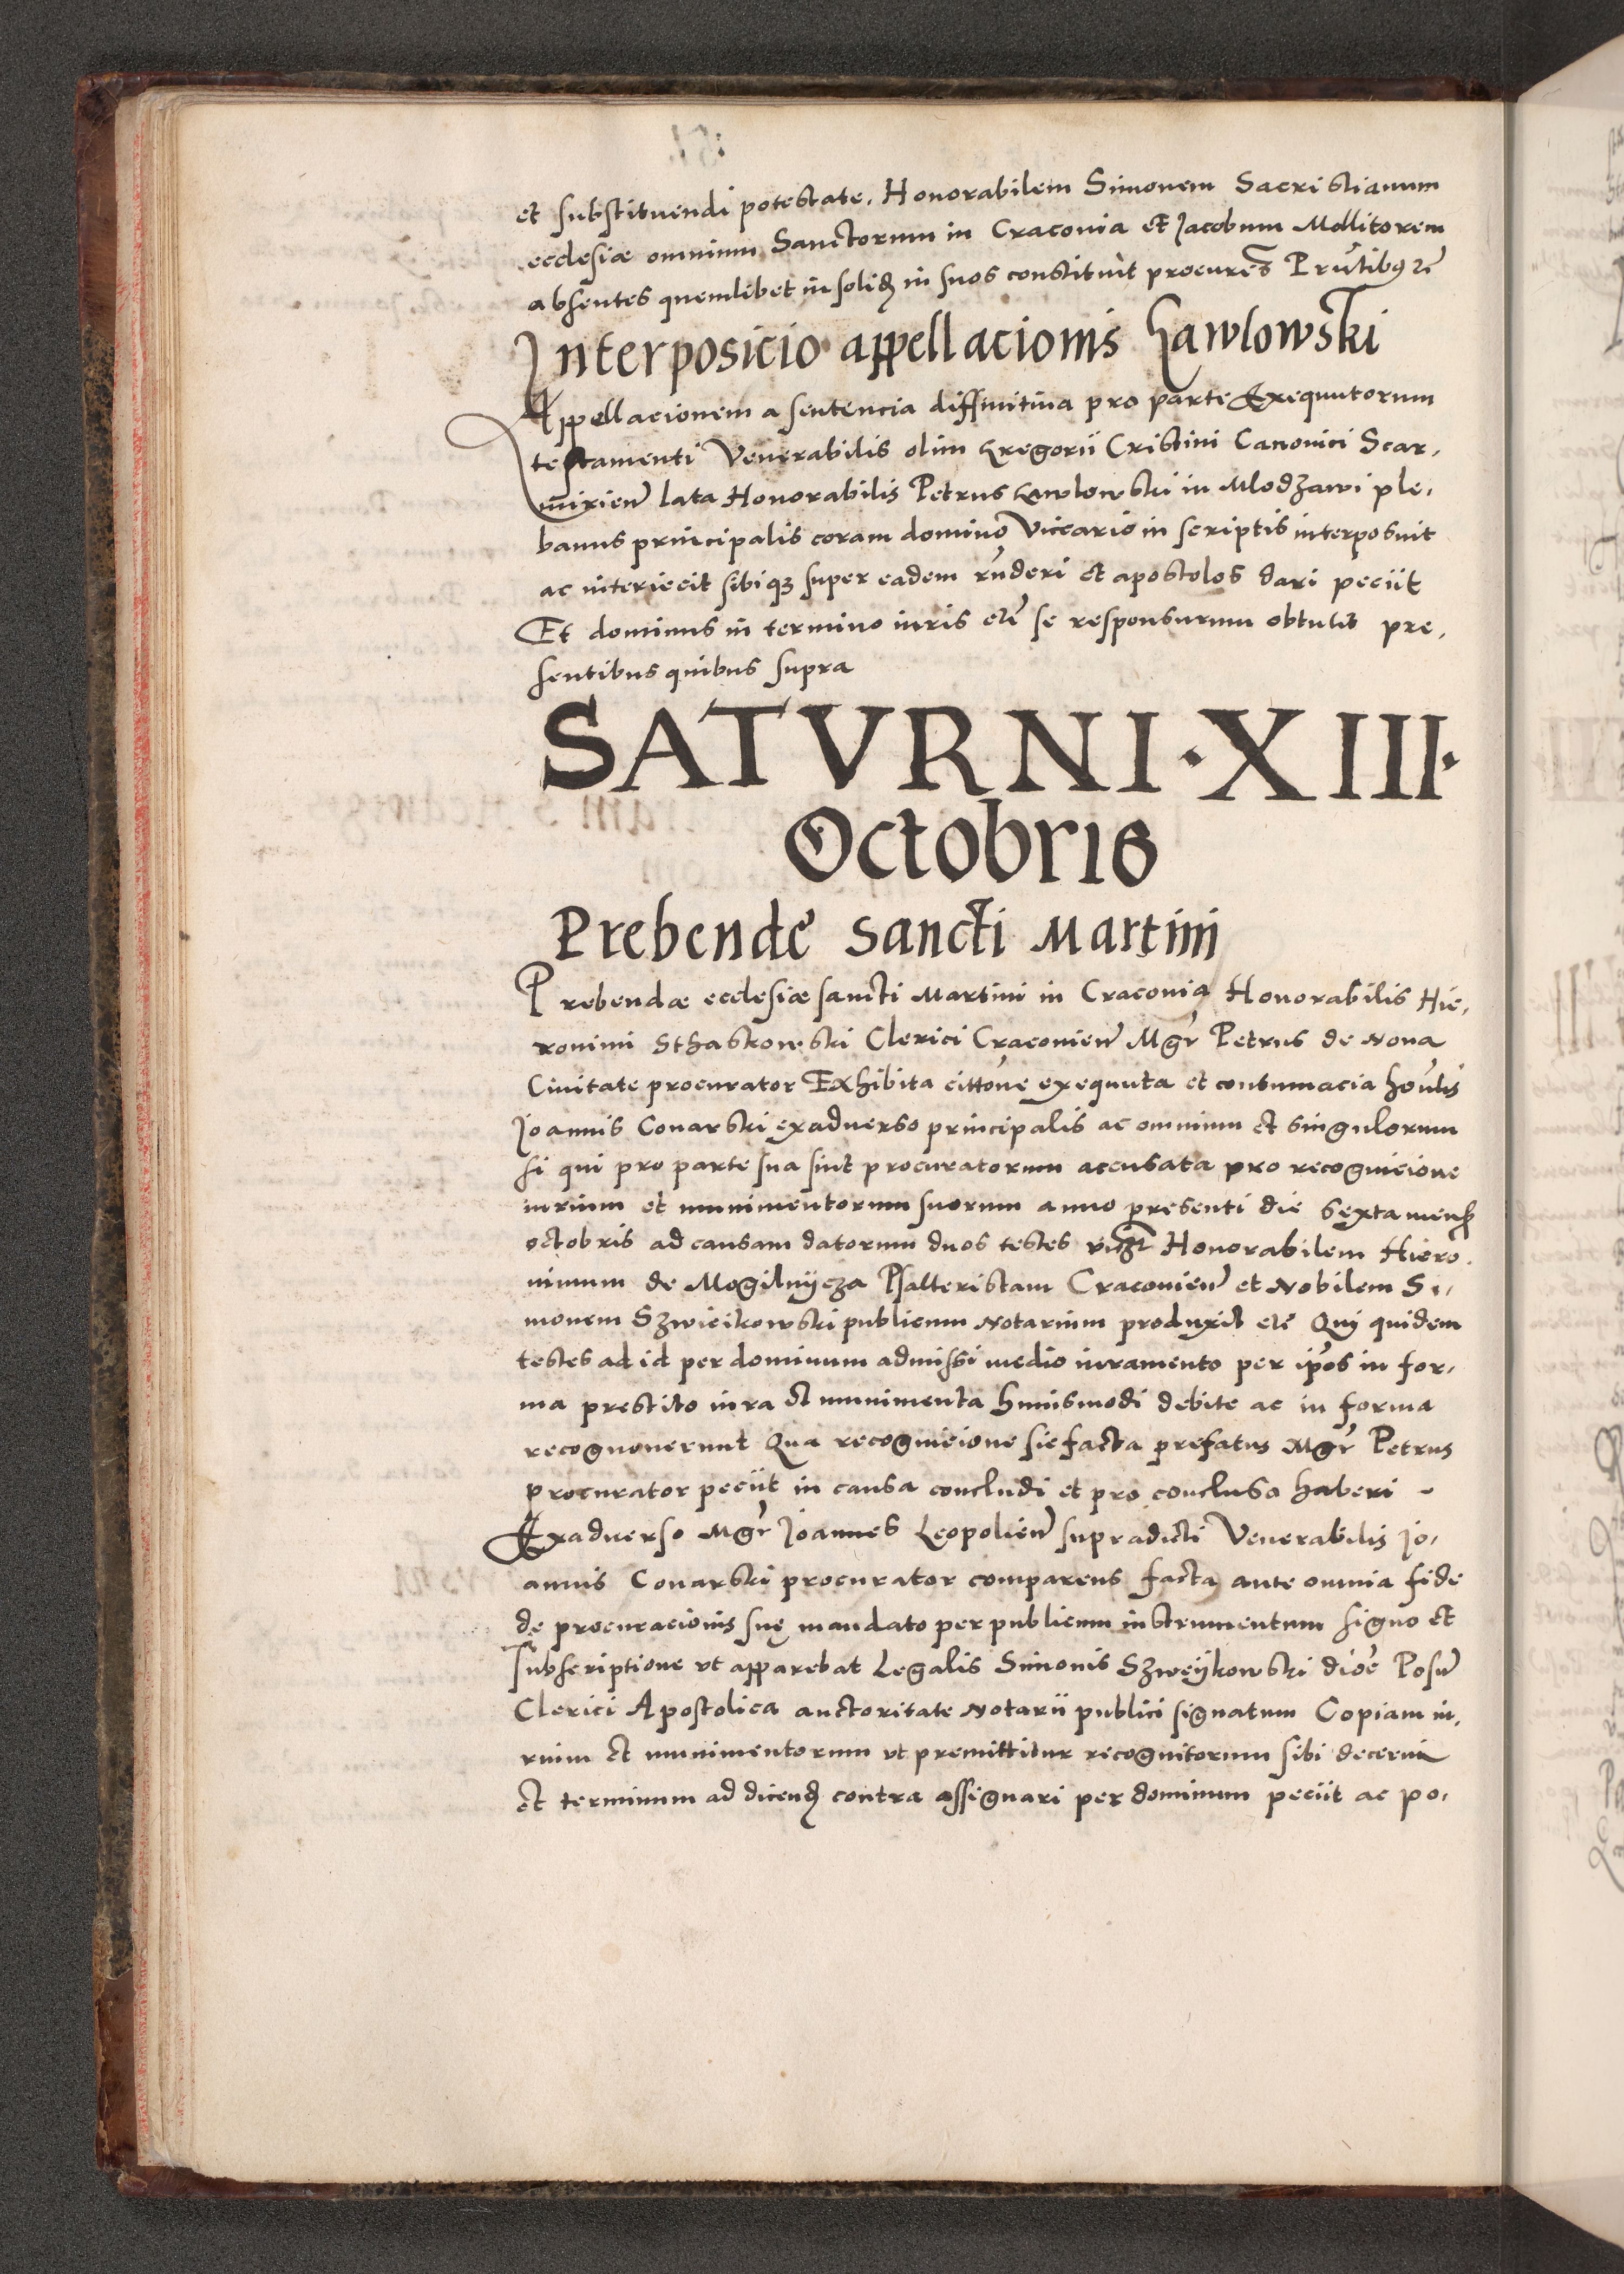 et substituendi potestate, Honorabilem Simonem Sacristianum
ecclesiæ omnium Sanctorum in Craconia et Jacobum Mellitorem
absentes quemlibet in solid in suos constituit procures Prntibus etc
Interposicio appellacionis Gawlowski
Appellacionem a sentencia diffinitiua pro parte Exequutorum
testamenti Venerabilis olim Gregorii Cristini Canonici Scar,
mirien lata Honorabilis Petrus Gawlowski in Mlodzawi ple,
banus principalis coram domino Vicario in scriptis interposuit
ac interiecit sibiq3 super eadem rnderi et apostolos dari peciit
Et dominus in termino iuris etc se responsurum obtulit pre,
sentibus quibus supra
SATVRNI·XIII·
Octobris
Prebende sancti Martini
Prebendæ ecclesiæ sancti Martini in Craconia Honorabilis Hie,
ronimi Sthaskowski Clerici Craconien Mgr Petrus de Noua
Ciuitate procurator Exhibita cittone exequuta et contumacia honlis
Joannis Conarski exaduerso principalis ac omnium et singulorum
si qui pro parte sua sint procuratorum accusata pro recognicione
iurium et munimentorum suorum anno presenti die sexta mens
octobris ad causam datorum duos testes vidz Honorabilem Hiero,
nimum de Mogilnycza Psalteristam Craconien et Nobilem Si,
monem Szwieikowski publicum Notarium produxit etc Qui quidem
testes ad id per dominum admissi medio iuramento per ipos in for,
ma prestito iura et munimenta huiusmodi debite ac in forma
recognouerunt Qua recognicione sic facta prefatus Mgr Petrus
procurator peciit in causa concludi et pro conclusa haberi -
Exaduerso Mgr Joannes Leopolien supradicti Venerabilis Jo,
annis Conarski procurator comparens facta ante omnia fide
de procuracionis suę mandato per publicum instrumentum signo et
subscriptione vt apparebat Legalis Simonis Szweykowski dioc Posn
Clerici Apostolica auctoritate Notarii publici signatum Copiam iu,
rium et munimentorum vt premittitur recognitorum sibi decerni
et terminum ad dicend contra assignari per dominum peciit ac po,